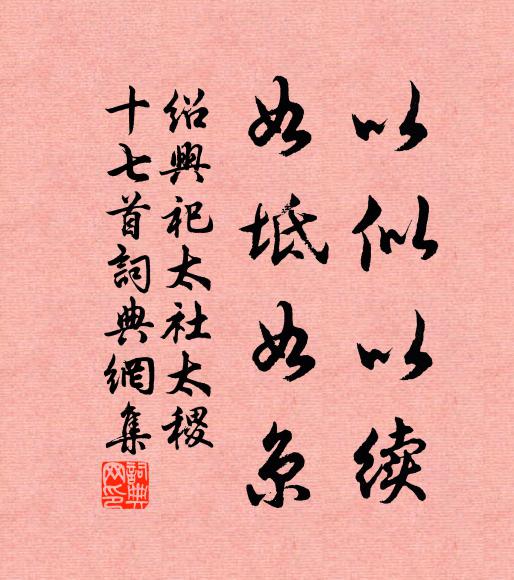 以似以续
如坻如京
绍興祀太社太稷
十七首詞典網集
詞典
网印